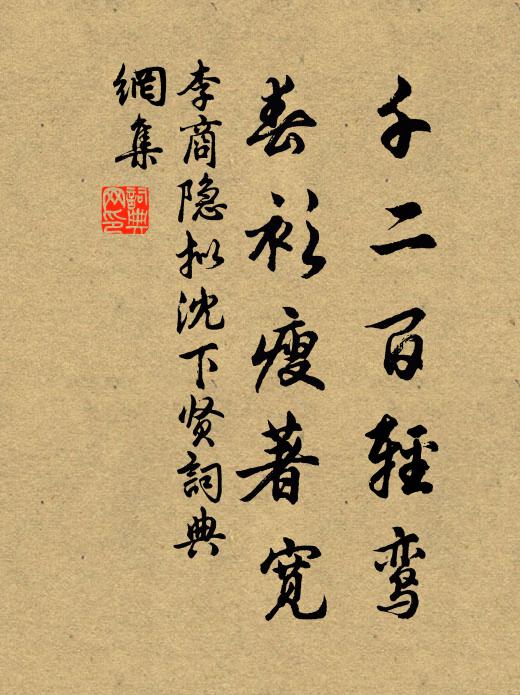 千二百轻鸾
春衫瘦著宽
李商隐拟沈下贤词典
網集
詞典網印